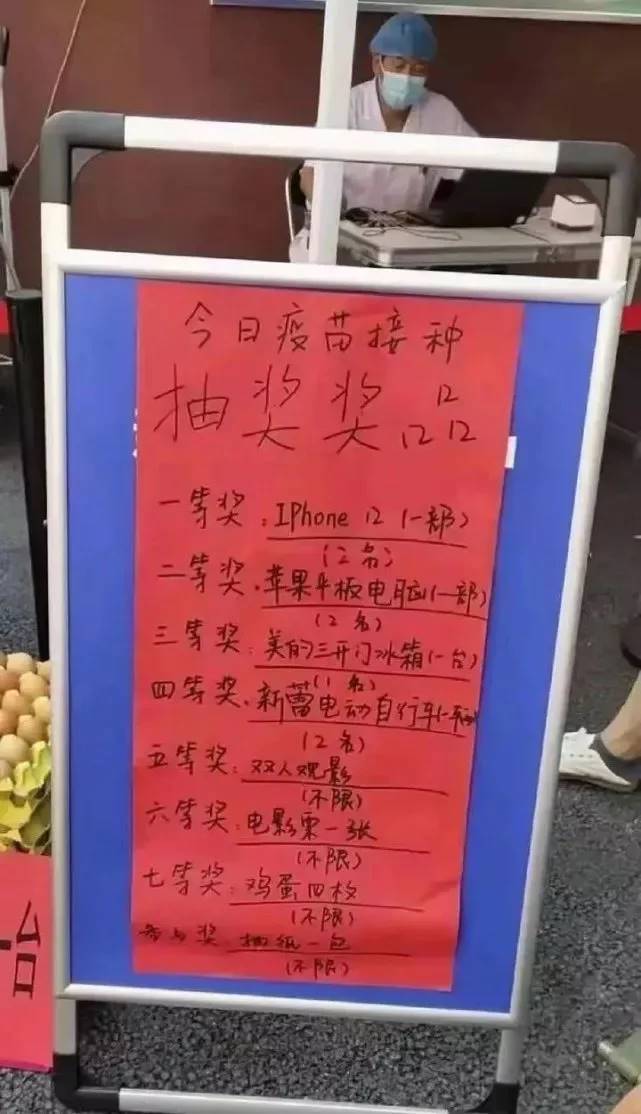 今日疫苗接种
抽奖奖品
一等奖：IPhone 12 (一部)
(2名)
二等奖：苹果平板电脑(一部)
(2名)
三等奖：美的三开门冰箱(一台)
(1名)
四等奖：新蕾电动自行车(一辆)
(2名)
五等奖：双人观影
(不限)
六等奖：电影票一张
(不限)
七等奖：鸡蛋四枚
(不限)
参与奖：抽纸一包
(不限)
台